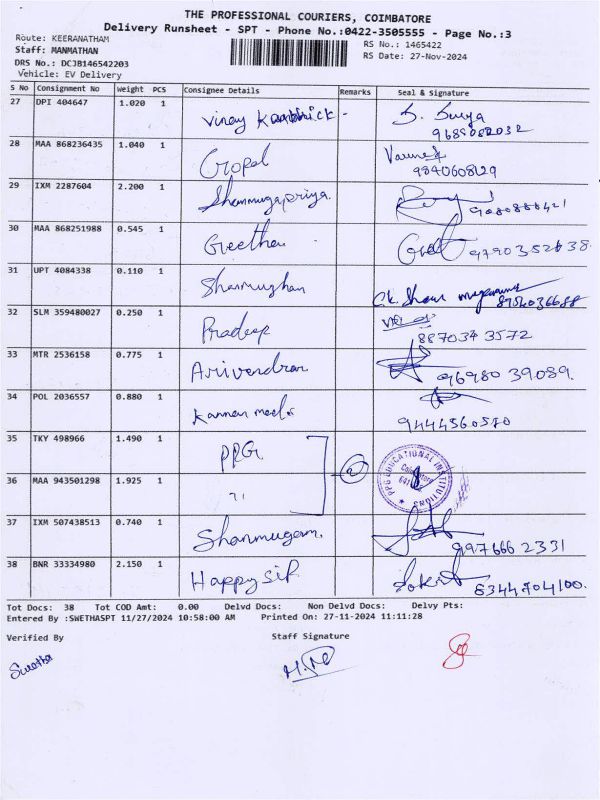 THE PROFESSIONAL COURIERS, COIMBATORE
Delivery Runsheet - SPT - Phone No.:0422-3505555 - Page No.:3
Route: KEERANATHAM
Staff: MANMATHAN
DRS No.: DCJB146542203
Vehicle: EV Delivery
RS No.: 1465422
RS Date: 27-Nov-2024
S No Consignment No Weight PCS Consignee Details Remarks Seal & Signature
27 DPI 404647 1.020 1 Vinay - S. Surya
28 MAA 868236435 1.040 1 Gopal
9840608129
29 IXM 2287604 2.200 1 Shanmugapriya.
30 MAA 868251988 0.545 1 Geetha
9790352638
31 UPT 4084338 0.110 1 Shanmughan
32 SLM 359480027 0.250 1 Pradeep
887034 3572
33 MTR 2536158 0.775 1 Arivendran
96980 39089.
34 POL 2036557 0.880 1 Kannan
9444560580
35 TKY 498966 1.490 1 PPG PPG EDUCATIONAL INSTITUTIONS
36 MAA 943501298 1.925 1 "
37 IXM 507438513 0.740 1 Shanmugam.
997666 2331
38 BNR 33334980 2.150 1 Happy Sir
8344704100.
Tot Docs: 38 Tot COD Amt: 0.00 Delvd Docs: Non Delvd Docs: Delvy Pts:
Entered By :SWETHASPT 11/27/2024 10:58:00 AM Printed On: 27-11-2024 11:11:28
Verified By Staff Signature